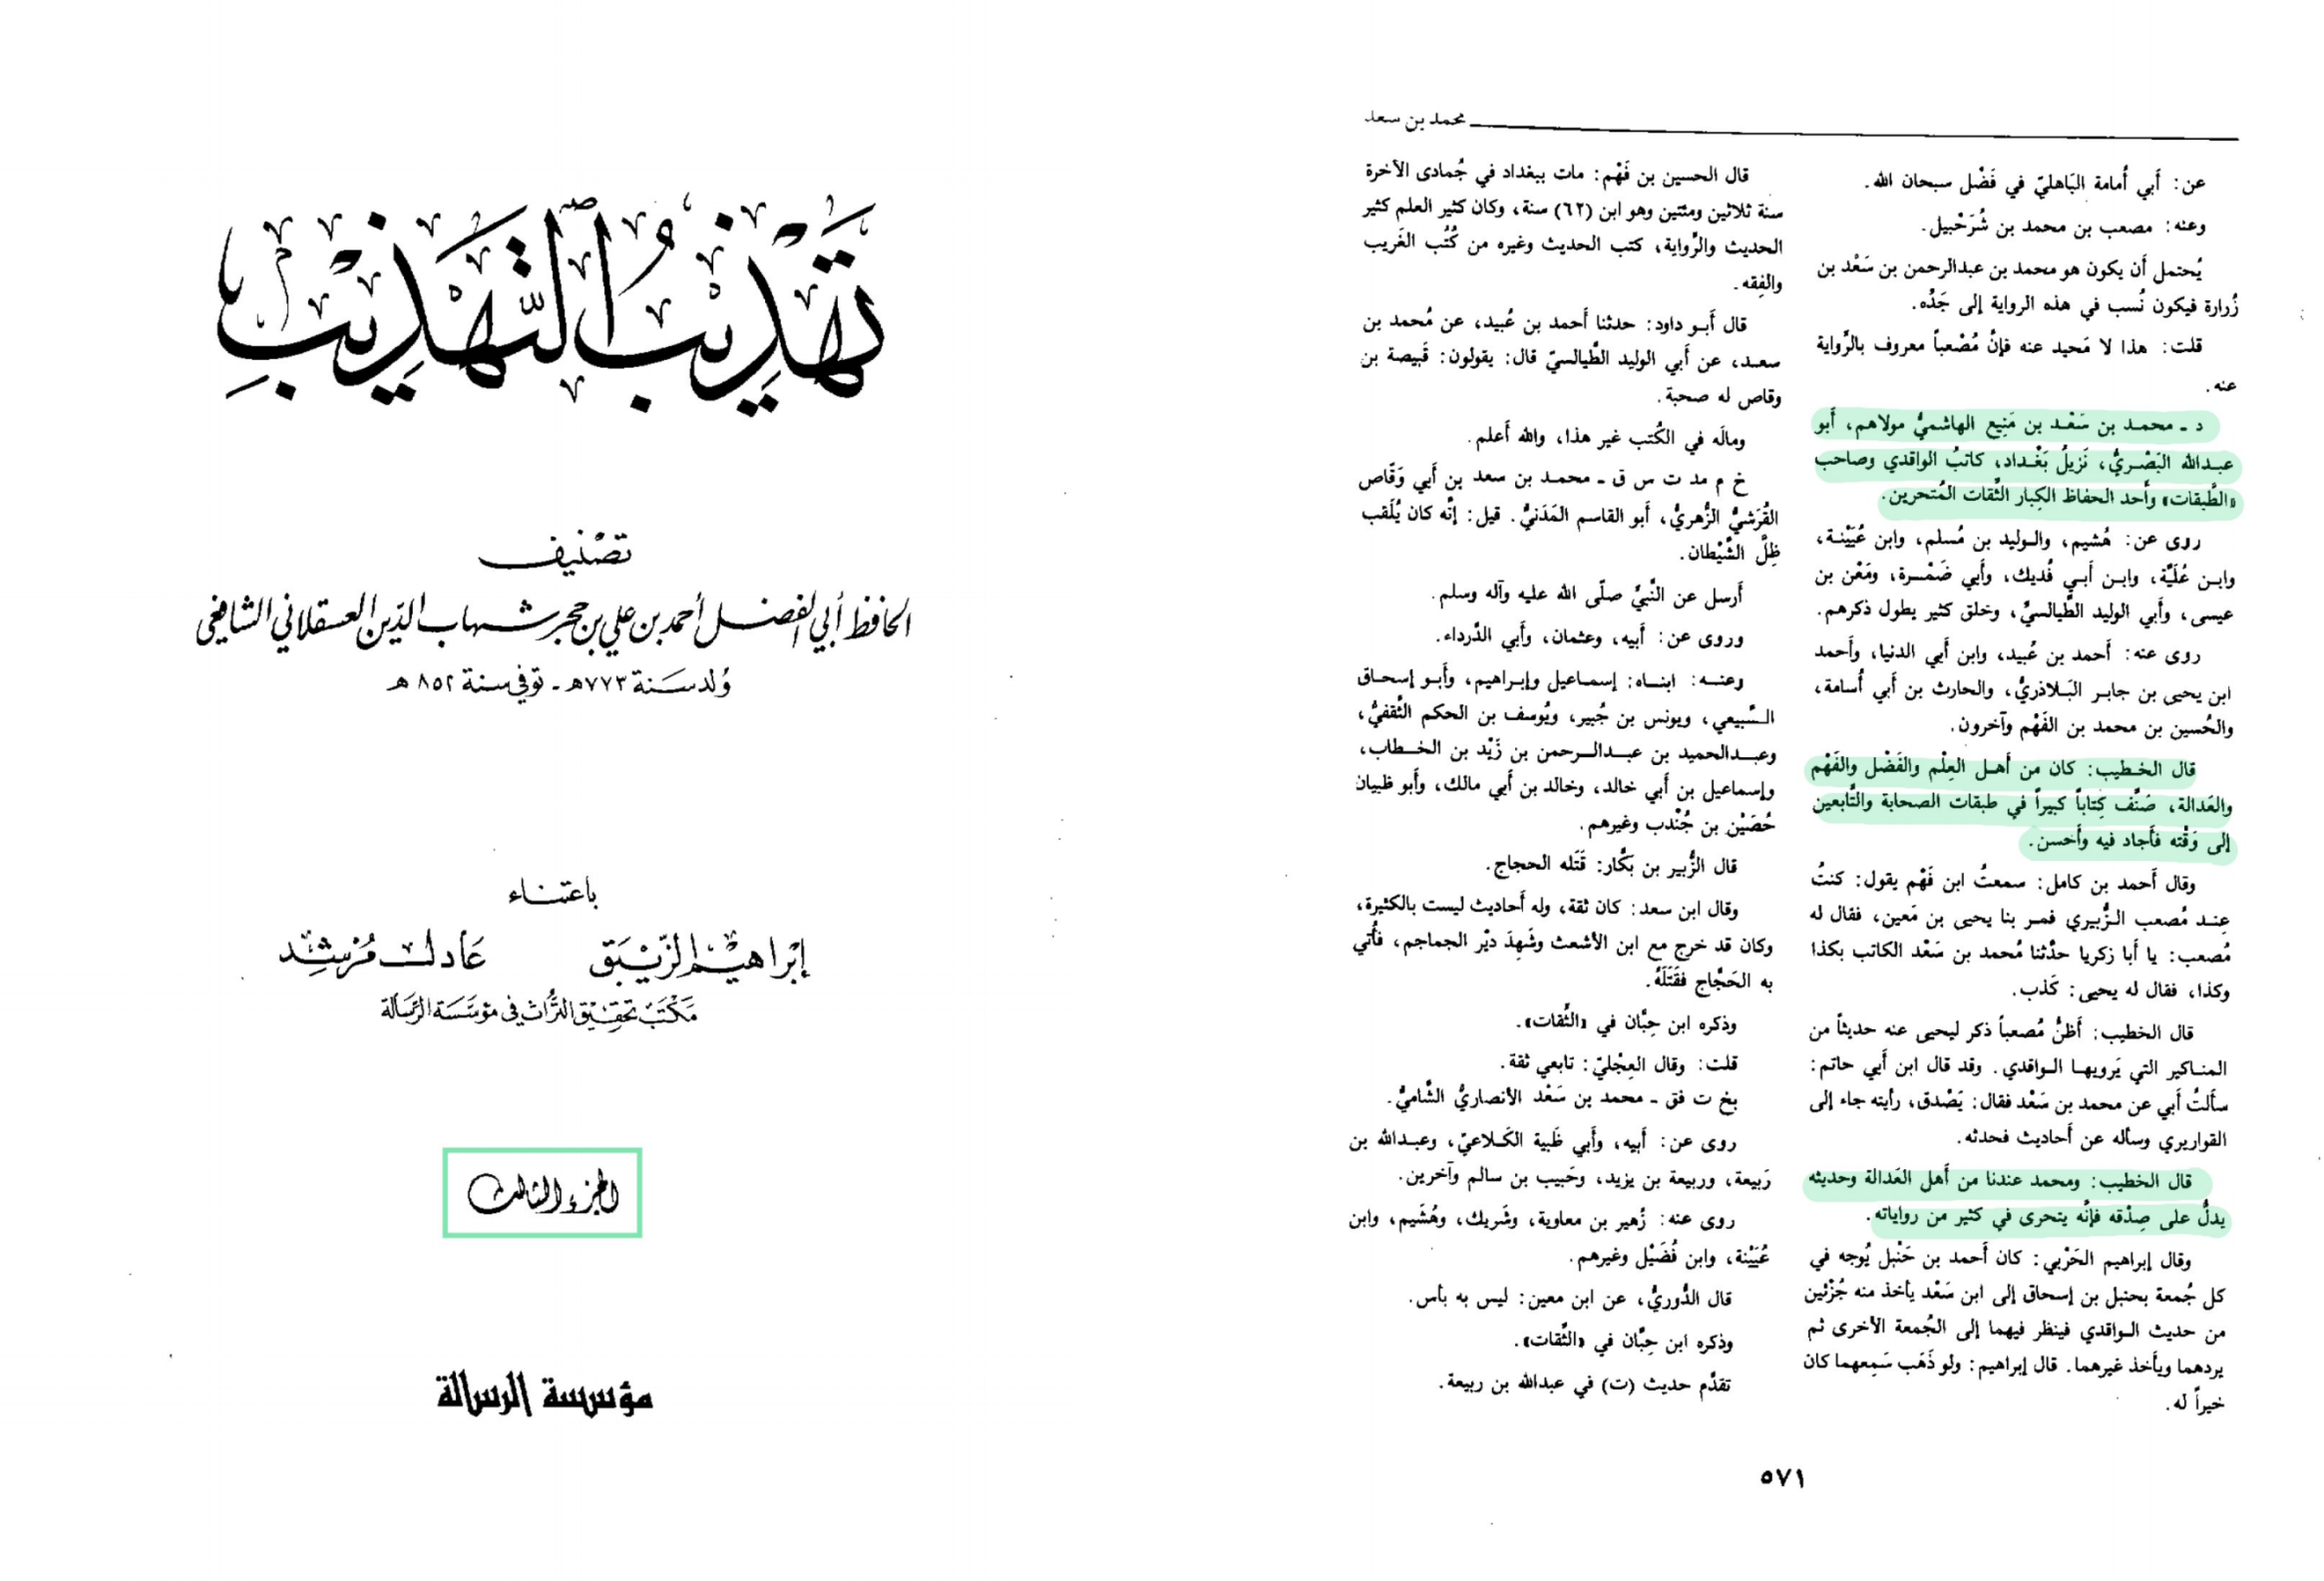 تهذيب التهذيب
تصنيف
الحافظ أبي الفضل أحمد بن علي بن حجر شهاب الدين العسقلاني الشافعي
ولد سنة ٧٧٣هـ - توفي سنة ٨٥٢ هـ
باعتناء
إبراهيم الزيبق عادل مرشد
مكتب تحقيق التراث في مؤسسة الرسالة
الجزء الثالث
مؤسسة الرسالة
محمد بن سعد
عن: أَبي أُمامة البَاهليّ في فَضْل سبحان الله.
وعنه: مصعب بن محمد بن شُرَحْبيل.
يُحتمل أَن يكون هو محمد بن عبدالرحمن بن سَعْد بن
زُرارة فيكون نُسب في هذه الرواية إلى جَدِّه.
قلت: هذا لا مَحيد عنه فإنَّ مُصْعباً معروف بالرِّواية
عنه.
د ـ محمد بن سَعْد بن مَنِيع الهاشميُّ مولاهم، أَبو
عبدالله البَصْريُّ، نَزيلُ بَغْداد، كاتبُ الواقدي وصاحب
«الطَّبقات» وأَحد الحفاظ الكِبار الثِّقات المُتحرين.
روى عن: هُشيم، والوليد بن مُسلم، وابن عُيَيْنة،
وابن عُلَيَّة، وابن أَبي فُديك، وأَبي ضَمْرة، ومَعْن بن
عيسى، وأَبي الوليد الطَّيالسيِّ، وخلق كثير يطول ذكرهم.
روى عنه: أَحمد بن عُبيد، وابن أَبي الدنيا، وأَحمد
ابن يحيى بن جابر البَلاذريُّ، والحارث بن أَبي أُسامة،
والحُسين بن محمد بن الفَهْم وآخرون.
قال الخطيب: كان من أَهل العِلْم والفَضْل والفَهْم
والعَدالة، صَنَّف كِتاباً كبيراً في طبقات الصحابة والتَّابعين
إلى وَقْته فأَجاد فيه وأَحسن.
وقال أَحمد بن كامل: سمعتُ ابن فَهْم يقول: كنتُ
عِند مُصعب الزُّبيري فمر بنا يحيى بن مَعين، فقال له
مُصعب: يا أَبا زكريا حدَّثنا مُحمد بن سَعْد الكاتب بكذا
وكذا، فقال له يحيى: كَذب.
قال الخطيب: أَظنُّ مُصعباً ذكر ليحيى عنه حديثاً من
المناكير التي يَرويها الواقدي. وقد قال ابن أَبي حاتم:
سأَلتُ أَبي عن محمد بن سَعْد فقال: يَصْدق، رأَيته جاء إلى
القواريري وسأَله عن أَحاديث فحدثه.
قال الخطيب: ومحمد عندنا من أَهل العَدالة وحديثه
يدلُّ على صِدْقه فإنَّه يتحرى في كثير من رواياته.
وقال إبراهيم الحَرْبي: كان أَحمد بن حَنْبل يُوجه في
كل جُمعة بحنبل بن إسحاق إلى ابن سَعْد يأخذ منه جُزْئين
من حديث الواقدي فينظر فيهما إلى الجُمعة الأخرى ثم
يردهما ويأخذ غيرهما. قال إبراهيم: ولو ذَهَب سَمِعهما كان
خيراً له.
قال الحسين بن فَهْم: مات ببغداد في جُمادى الآخرة
سنة ثلاثين ومئتين وهو ابن (٦٢) سنة، وكان كثير العلم كثير
الحديث والرِّواية، كتب الحديث وغيره من كُتُب الغَريب
والفِقه.
قال أَبو داود: حدثنا أَحمد بن عُبيد، عن مُحمد بن
سعد، عن أَبي الوليد الطَّيالسيّ قال: يقولون: قَبيصة بن
وقاص له صحبة.
ومالَه في الكُتب غير هذا، والله أَعلم.
خ م مد ت س ق ـ محمد بن سعد بن أَبي وَقَّاص
القُرَشيُّ الزُّهريُّ، أَبو القاسم المَدَنيُّ. قيل: إنَّه كان يُلَقب
ظِلَّ الشَّيْطان.
أَرسل عن النَّبيِّ صلّى الله عليه وآله وسلم.
وروى عن: أَبيه، وعثمان، وأَبي الدَّرداء.
وعنه: ابناه: إسماعيل وإبراهيم، وأَبو إسحاق
السَّبيعي، ويونس بن جُبير، ويُوسف بن الحكم الثَّقفيُّ،
وعبدالحميد بن عبدالرحمن بن زَيْد بن الخطاب،
وإسماعيل بن أَبي خالد، وخالد بن أَبي مالك، وأَبو ظبيان
حُصَيْن بن جُنْدب وغيرهم.
قال الزُّبير بن بَكَّار: قَتَله الحجاج.
وقال ابن سعد: كان ثقة، وله أَحاديث ليست بالكثيرة،
وكان قد خرج مع ابن الأشعث وشَهِدَ ديْر الجماجم، فأُتي
به الحَجَّاج فقَتَلَهُ.
وذكره ابن حِبَّان في «الثِّقات».
قلت: وقال العِجْليّ: تابعي ثقة.
بخ ت فق ـ محمد بن سَعْد الأنصاريُّ الشَّاميُّ.
روى عن: أَبيه، وأَبي ظَبية الكَلاعيّ، وعبدالله بن
رَبيعة، وربيعة بن يزيد، وحَبيب بن سالم وآخرين.
روى عنه: زُهير بن معاوية، وشَريك، وهُشَيم، وابن
عُيَيْنة، وابن فُضَيْل وغيرهم.
قال الدُّوريُّ، عن ابن معين: ليس به بأس.
وذكره ابن حِبَّان في «الثِّقات».
تقدَّم حديث (ت) في عبدالله بن ربيعة.
٥٧١